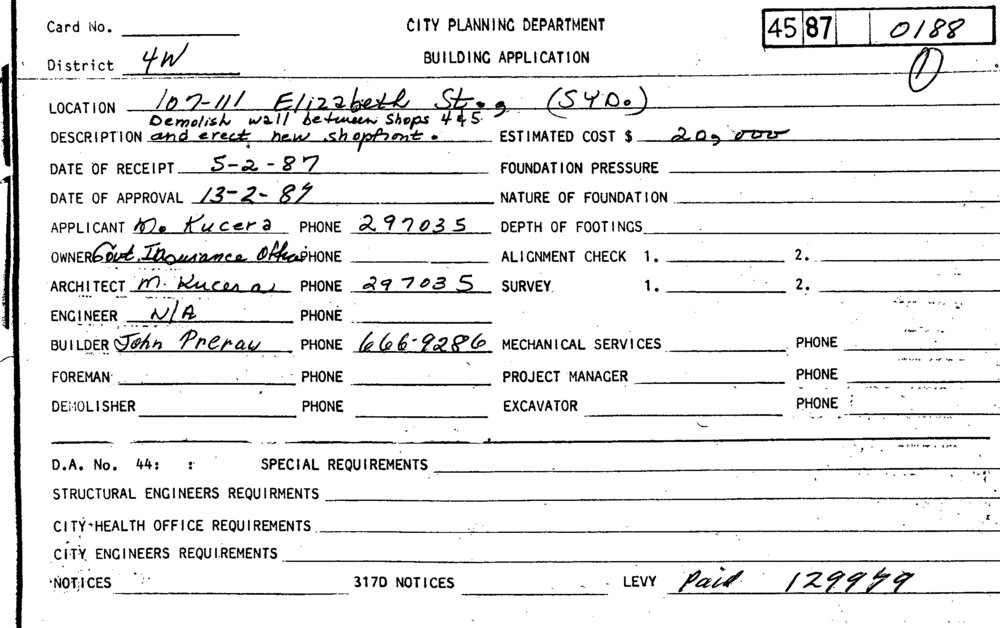 Card No. CITY PLANNING DEPARTMENT 45 87 0188
District 4W BUILDING APPLICATION 1
LOCATION 107-111 Elizabeth St., (SYD.)
Demolish wall between Shops 4 & 5
DESCRIPTION and erect new shopfront. ESTIMATED COST $ 20,000
DATE OF RECEIPT 5-2-87 FOUNDATION PRESSURE
DATE OF APPROVAL 13-2-87 NATURE OF FOUNDATION
APPLICANT M. Kucera PHONE 297035 DEPTH OF FOOTINGS
OWNER Govt. Insurance Office PHONE ALIGNMENT CHECK 1. 2.
ARCHITECT M. Kucera PHONE 297035 SURVEY 1. 2.
ENGINEER N/A PHONE
BUILDER John PHONE 666-9286 MECHANICAL SERVICES PHONE
FOREMAN PHONE PROJECT MANAGER PHONE
DEMOLISHER PHONE EXCAVATOR PHONE
D.A. No. 44: : SPECIAL REQUIREMENTS
STRUCTURAL ENGINEERS REQUIRMENTS
CITY HEALTH OFFICE REQUIREMENTS
CITY ENGINEERS REQUIREMENTS
NOTICES 317D NOTICES LEVY Paid